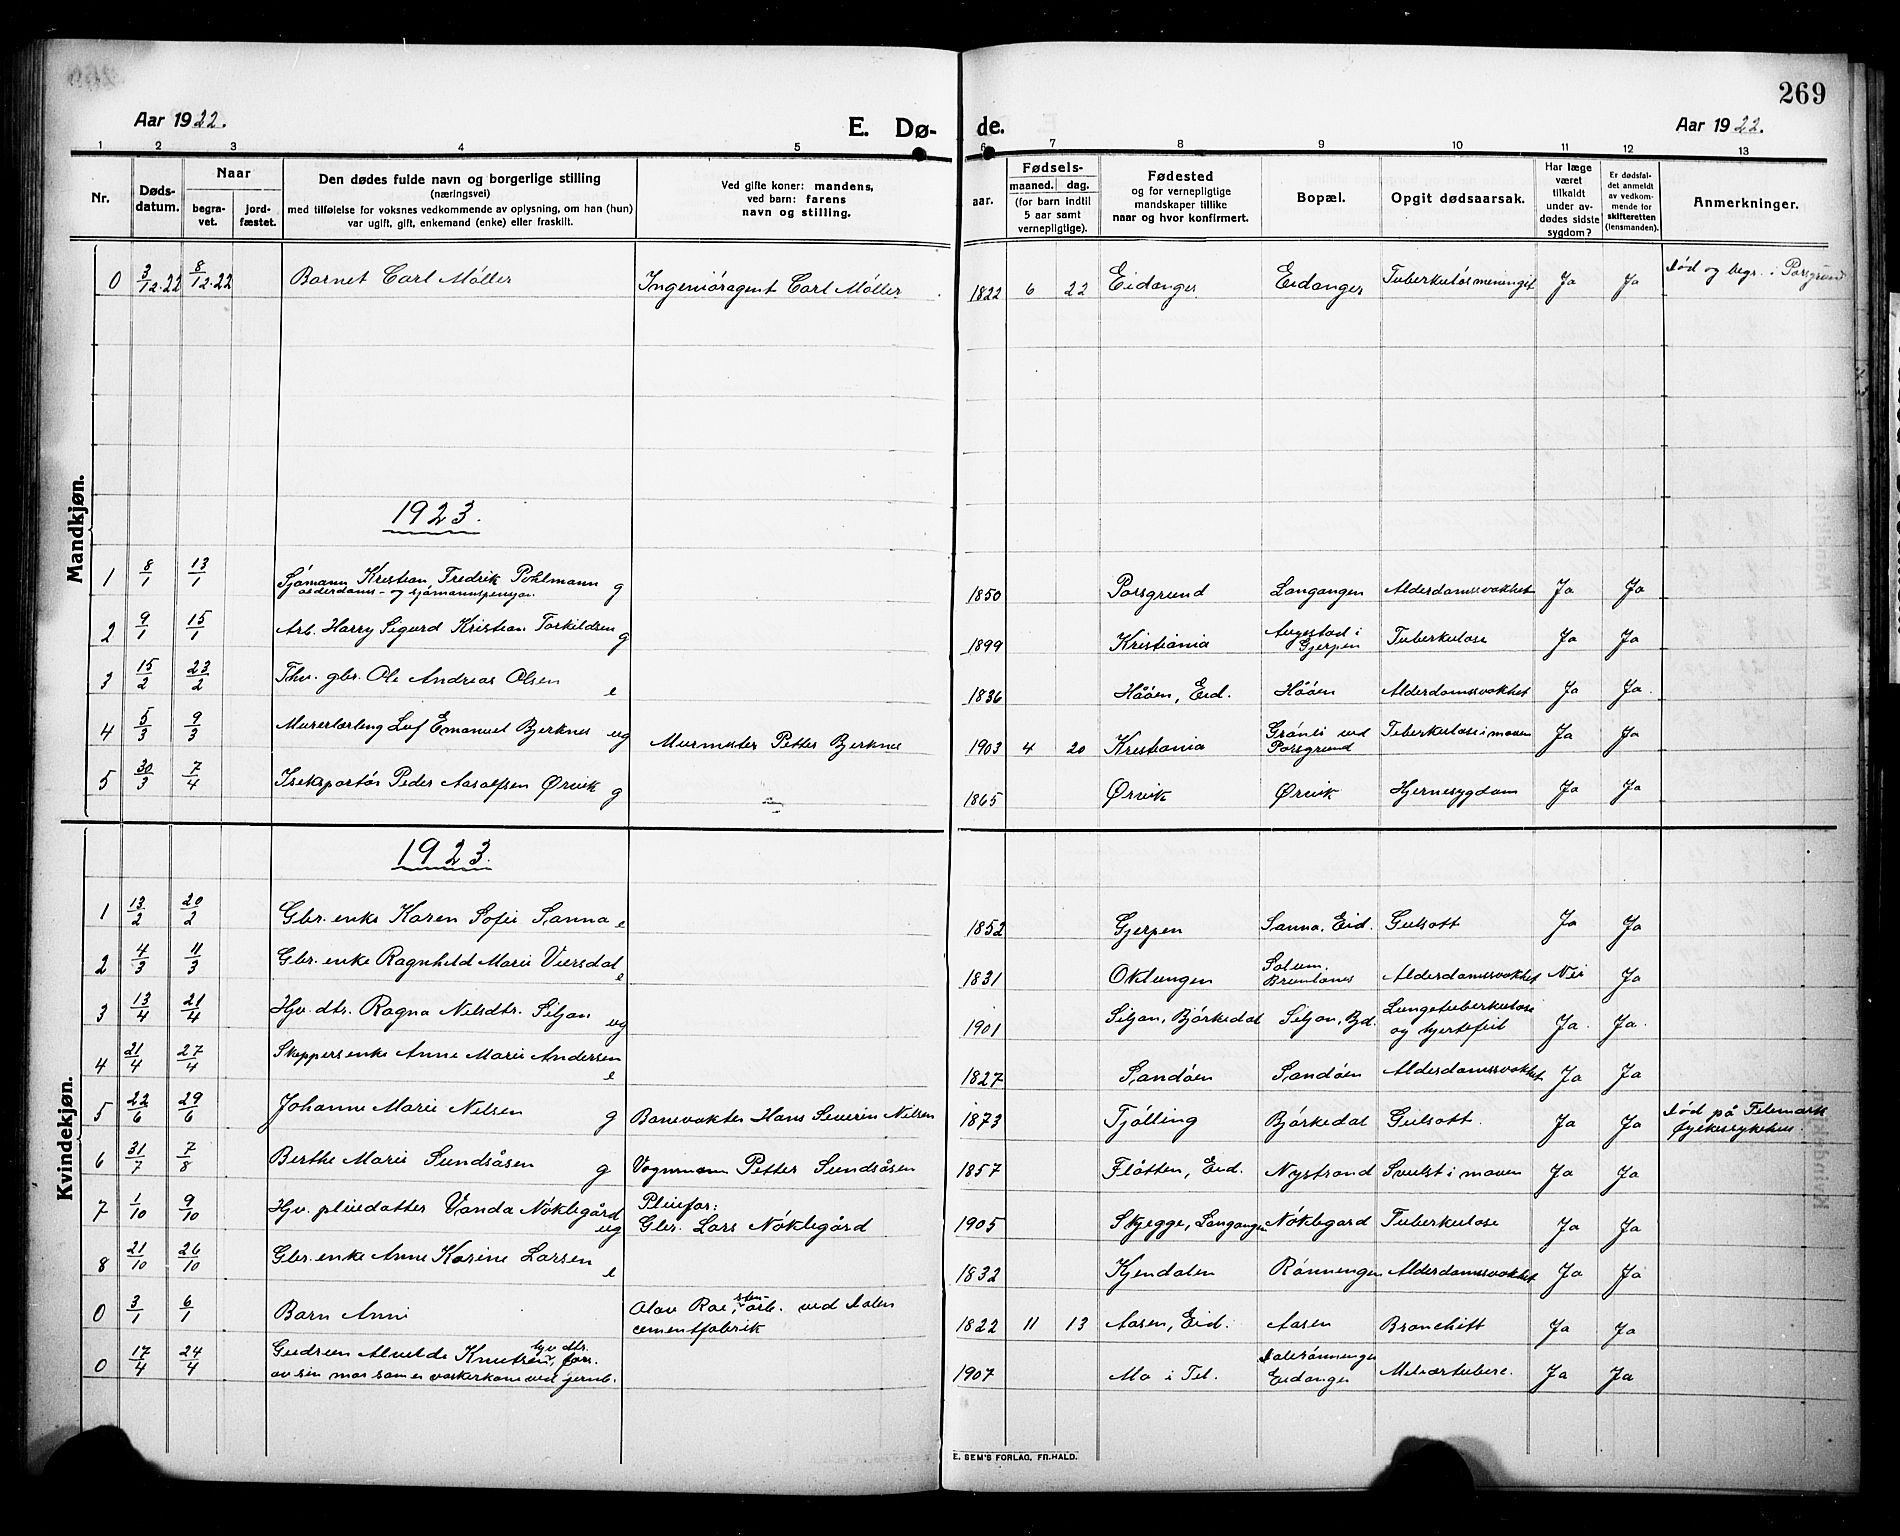 269
Aar 1922.
E. Dø-
de.
Aar 1922.
1 2 3 4 5 6 7 8 9 10 11 12 13
Nr.
Døds-
datum.
Naar
begra-
vet.
jord-
fæstet.
Den dødes fulde navn og borgerlige stilling
(næringsvei)
med tilføielse for voksnes vedkommende av oplysning, om han (hun)
var ugift, gift, enkemand (enke) eller fraskilt.
Ved gifte koner: mandens,
ved barn: farens
navn og stilling.
Fødsels-
aar.
maaned. dag.
(for barn indtil
5 aar samt
vernepligtige).
Fødested
og for vernepligtige
mandskaper tillike
naar og hvor konfirmert.
Bopæl.
Opgit dødsaarsak.
Har læge
været
tilkaldt
under av-
dødes sidste
sygdom?
Er dødsfal-
det anmeldt
av vedkom-
mende for
skifteretten
(lensmanden).
Anmerkninger.
Mandkjøn.
0 3/12.22 8/12.22 Barnet Carl Møller Ingeniøragent Carl Møller 1822 6 22 Eidanger Eidanger Tuberkuløsmeningit Ja Ja død og begr. i Porsgrund
1923.
1 8/1 13/1 Sjømann Kristian Fredrik Pohlmann g 1850 Porsgrund Langangen Alderdomssvakhet Ja Ja
alderdoms- og sjømannspensjon
2 9/1 15/1 Arb. Harry Sigurd Kristian Torkildsen g 1899 Kristiania Augestad i Gjerpen Tuberkulose Ja Ja
3 15/2 23/2 Fhv. gbr. Ole Andreas Olsen e 1836 Hååen, Eid. Hååen Alderdomssvakhet Ja Ja.
4 5/3 9/3 Murerlærling Leif Emanuel Bjerknes ug Murmester Petter Bjerknes 1903 4 20 Kristiania Grønli ved Porsgrund Tuberkulose i maven Ja Ja
5 30/3 7/4 Iseksportør Peder Aasolfsen Ørvik g 1865 Ørvik Ørvik Hjernesygdom Ja Ja
Kvindekjøn.
1923.
1 13/2 20/2 Gbr. enke Karen Sofie Sanna e 1852 Gjerpen Sanna, Eid. Gulsott Ja Ja
2 4/3 11/3 Gbr. enke Ragnhild Marie Viersdal e 1831 Oklungen Solum, Brunlanes Alderdomssvakhet Nei Ja
3 13/4 21/4 Hjv. dtr. Ragna Nilsdtr. Siljan ug 1901 Siljan, Bjørkedal Siljan, Bjd. Lungetuberkulose og hjertefeil Ja. Ja.
4 21/4 27/4 Skippersenke Anne Marie Andersen e 1827 Sandøen Sandøen Alderdomssvakhet Ja Ja
5 22/6 29/6 Johanne Marie Nilsen g Banevakter Hans Severin Nilsen 1873 Tjølling Bjørkedal Gulsott Ja Ja død på Telemark fylkessykehus.
6 31/7 7/8 Berthe Marie Sundsåsen g Vognmann Petter Sundsåsen 1857 Fløtten, Eid. Nystrand Svulst i maven Ja Ja
7 1/10 9/10 Hjv. pleiedatter Vanda Nøklegård ug Pleiefar: Gbr. Lars Nøklegård 1905 Skjegge, Langangen Nøklegard Tuberkulose Ja Ja
8 21/10 26/10 Gbr. enke Anne Karine Larsen e 1832 Kjendalen Rønningen Alderdomssvakhet Ja Ja
0 3/1 6/1 Barn Anni Olav Roe, sten-arb. ved Dalen cementfabrik 1822 11 13 Aasen, Eid. Aasen Bronchitt Ja Ja
0 17/4 24/4 Gudrun Alvilde Knutsen, hjv. dtr. fors. 1907 Mo i Tel. Dalsrønningen Eidanger Miliærtuberc. Ja Ja
av sin mor som er vaskerkone ved jernb.
E. SEM'S FORLAG, FR.HALD.